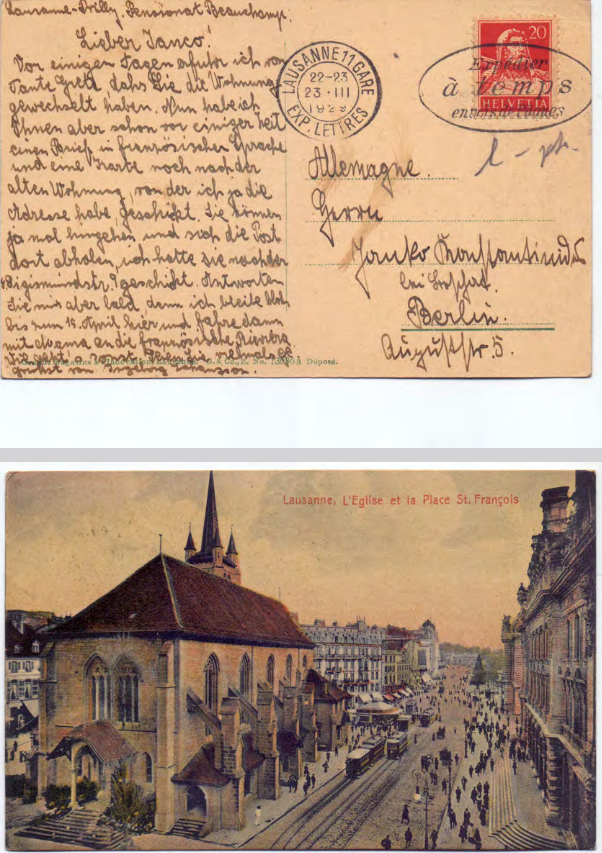 Lausanne-Prilly, Pensionat Beauchamp.
Lieber Janco!
Vor einigen Tagen erfuhr ich von
Tante Gretl, dahs Sie die Wohnung
gewechselt haben. Nun habe ich
Ihnen aber schon vor einiger Zeit
einen Brief in französischer Sprache
und eine Karte noch nach der
alten Wohnung, von der ich ja die
Adresse habe, geschickt. Sie können
ja mal hingehen und sich die Post
dort abholen, ich hatte sie nach der
geschickt. Antworten
Sie mir aber bald denn ich bleibe
bis zum 15. April hier und fahre dann
mit Mama an die französische Riviera
vielmals
grühst von
No. Déposé.
LAUSANNE 11 GARE
22-23
23 · III
1929
EXP. LETTRES
20
HELVETIA
Expédier
à temps
Allemagne.
Herrn
Janko
bei
Berlin.
Auguststr 5.
Lausanne, L'Eglise et la Place St. François